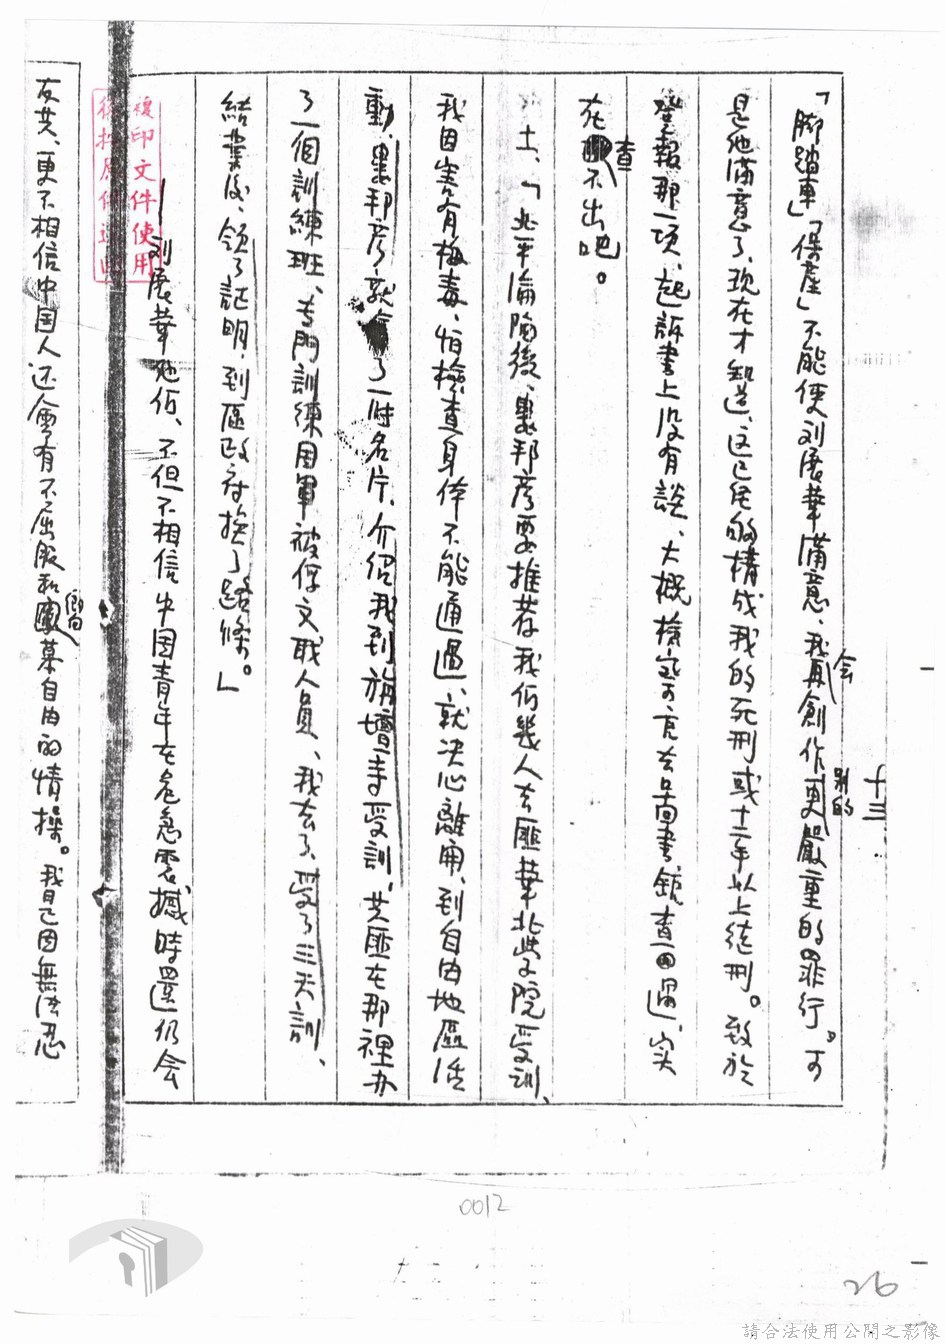 十三
「脚踏車」「保産」不能使刘展華滿意、我再会創作更别的嚴重的罪行。可
是他滿意了、现在才知道、这已经够構成我的死刑或十二年以上徒刑。致於
登報那一项、起訴書上没有談、大概檢察官去函圖書館查过、实
在查不出吧。
土、「北平淪陷後、裏邦彦要推荐我们幾人去匪華北学院受訓、
我因害有梅毒、怕檢查身体不能通過、就决心離開、到自由地區活
動、裏邦彦就給了一张名片、介绍我到旃壇寺受訓、共匪在那裡办
了一個訓練班、专門訓練国軍被俘文职人員、我去了、受了三天訓、
結業後、领了証明、到區政府换了路條。」
刘展華他们、不但不相信中国青年在危急震撼時還仍会
反共、更不相信中国人还會有不屈服和嚮慕自由的情操。我自己因無法忍
複印文件使用
0012
26
請合法使用公開之影像